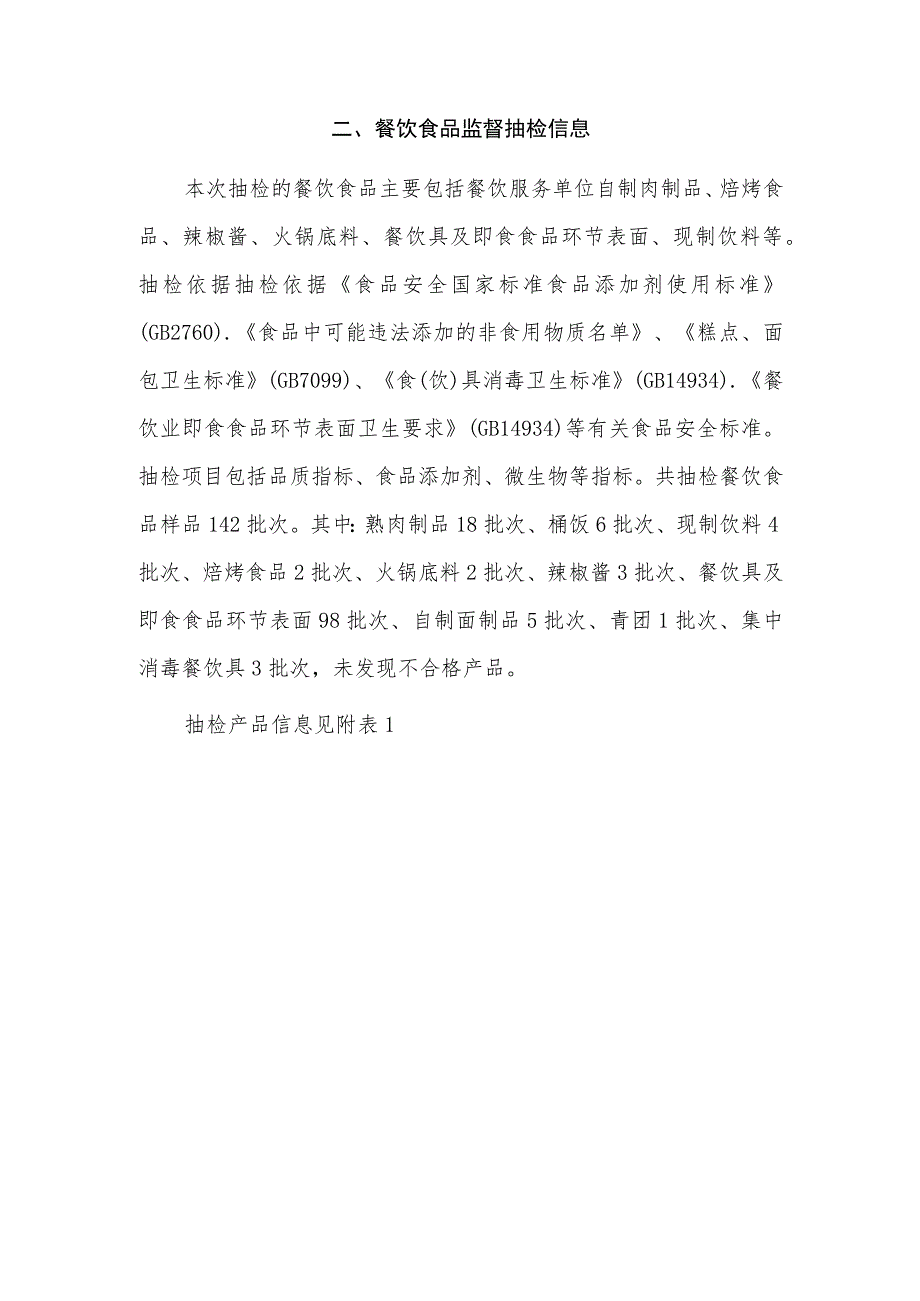 二、餐饮食品监督抽检信息
本次抽检的餐饮食品主要包括餐饮服务单位自制肉制品、焙烤食
品、辣椒酱、火锅底料、餐饮具及即食食品环节表面、现制饮料等。
抽检依据抽检依据《食品安全国家标准食品添加剂使用标准》
(GB2760).《食品中可能违法添加的非食用物质名单》、《糕点、面
包卫生标准》(GB7099)、《食(饮)具消毒卫生标准》(GB14934).《餐
饮业即食食品环节表面卫生要求》(GB14934)等有关食品安全标准。
抽检项目包括品质指标、食品添加剂、微生物等指标。共抽检餐饮食
品样品 142 批次。其中:熟肉制品 18 批次、桶饭 6 批次、现制饮料 4
批次、焙烤食品 2 批次、火锅底料 2 批次、辣椒酱 3 批次、餐饮具及
即食食品环节表面 98 批次、自制面制品 5 批次、青团 1 批次、集中
消毒餐饮具 3 批次，未发现不合格产品。
抽检产品信息见附表 1